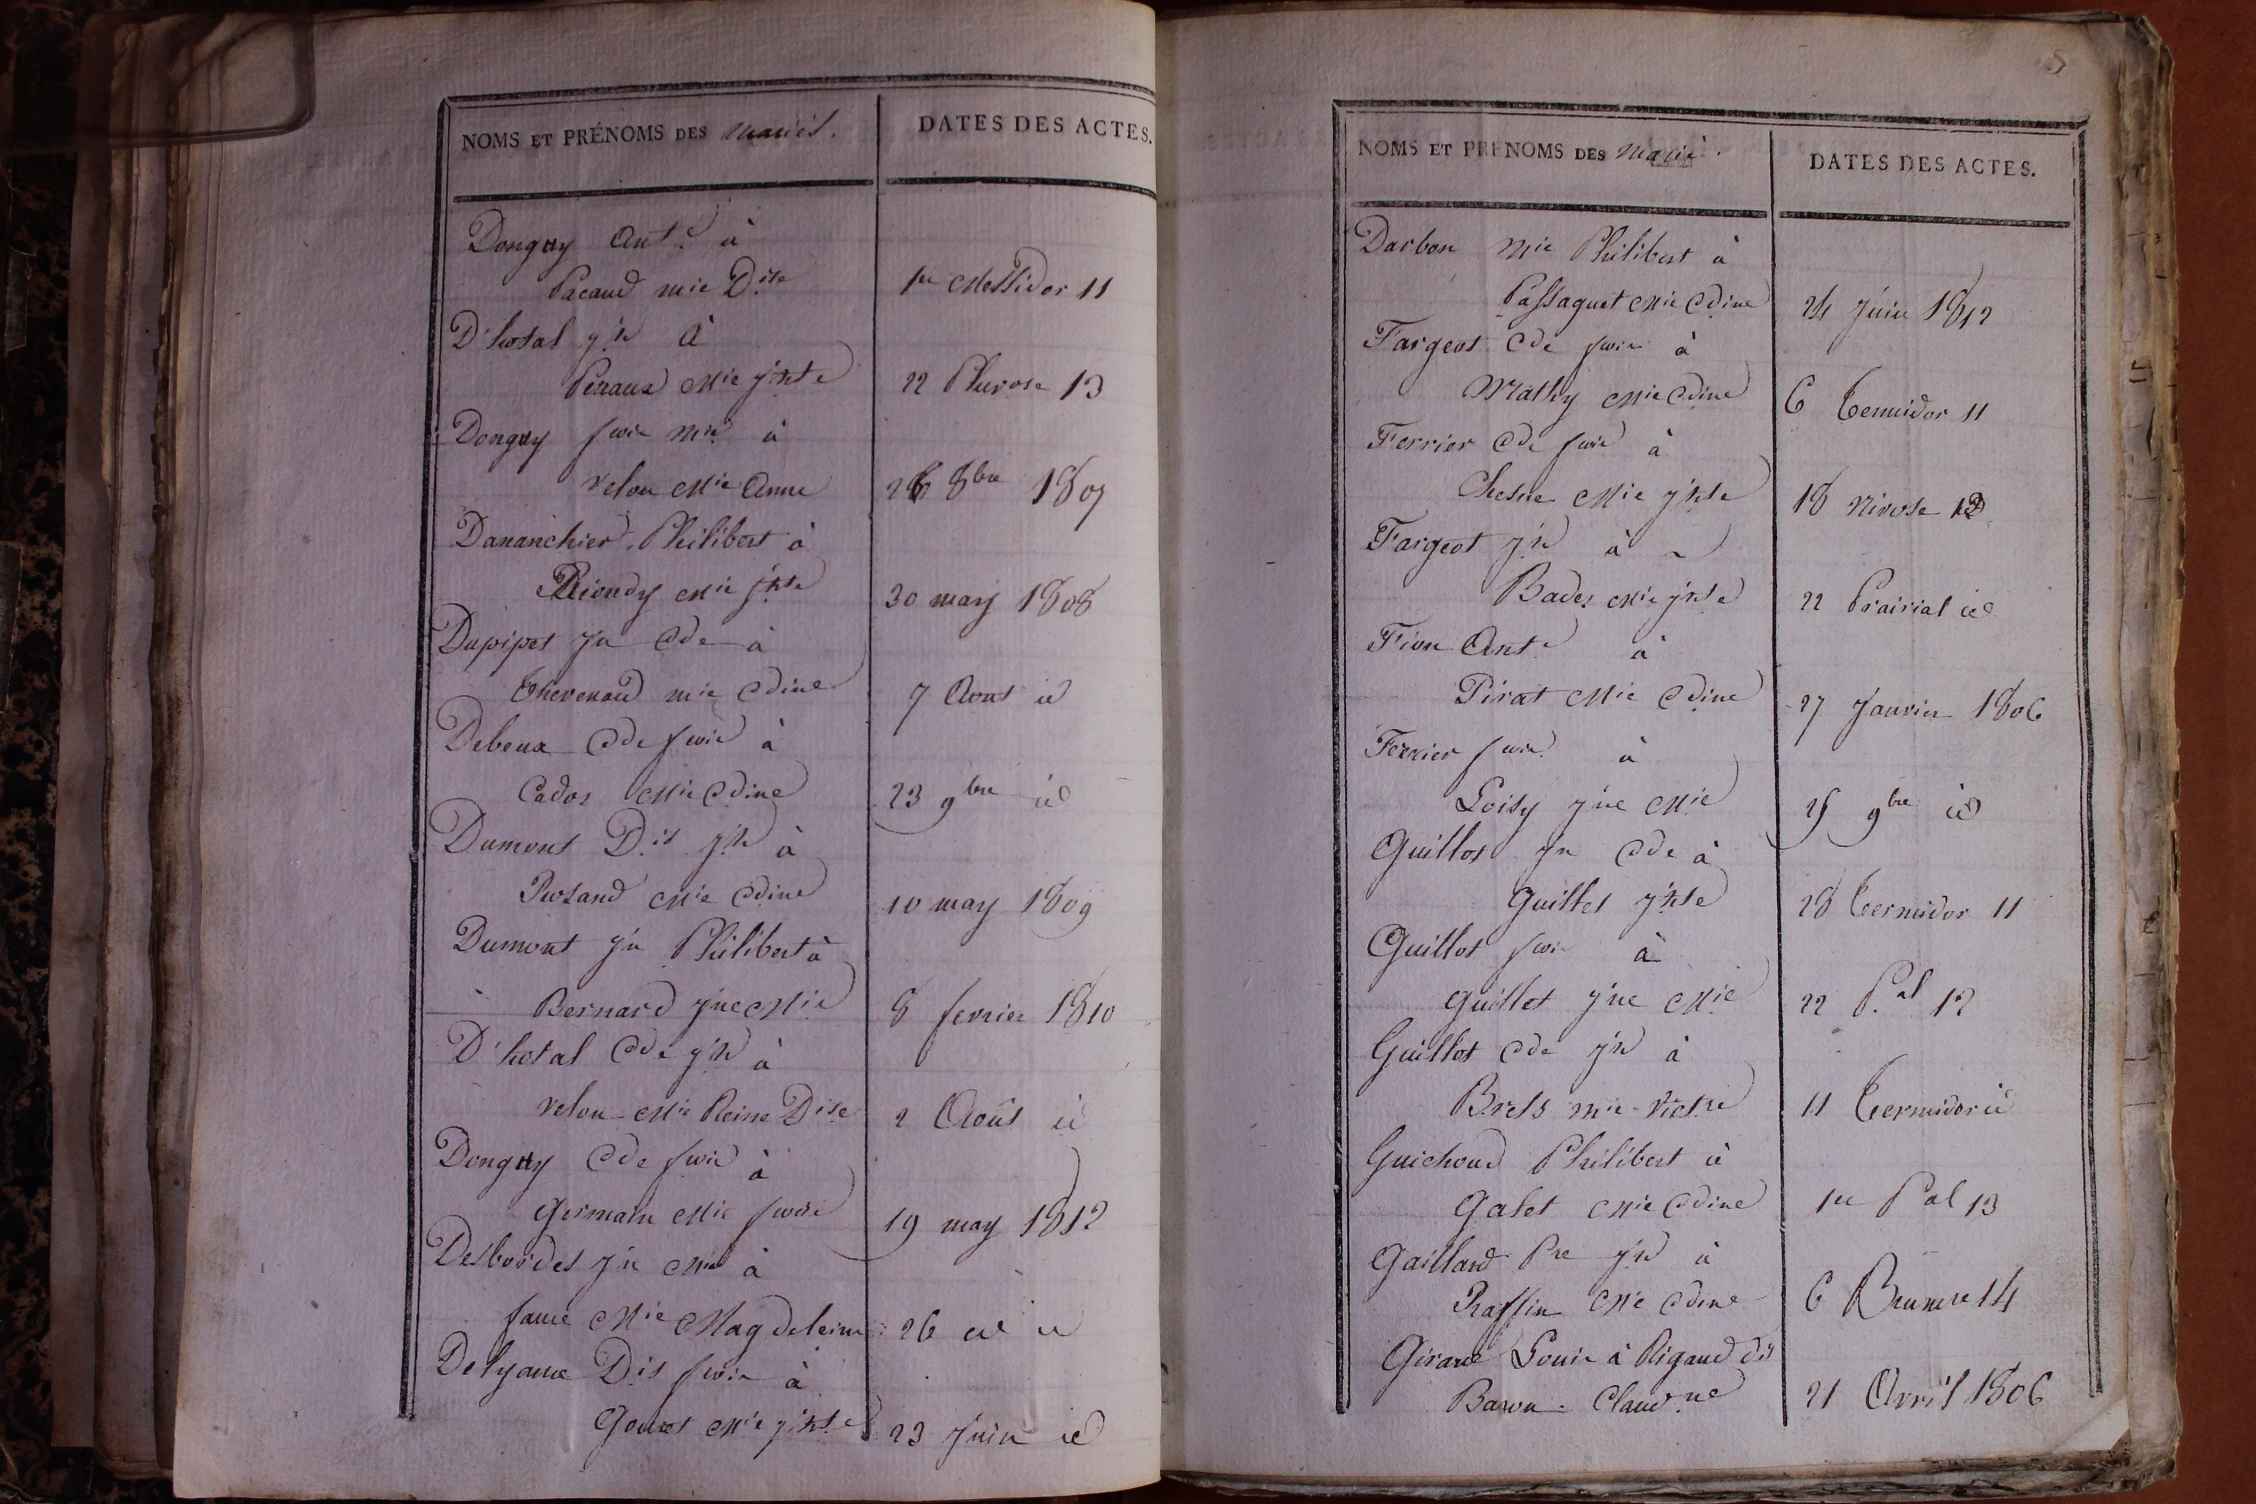 NOMS ET PRÉNOMS DES mariés.
DATES DES ACTES.
Donguy Ant.e à
Pacaud mie Dise
1er Messidor 11
D'hotal j.h à
Peraux Mie j.hte
22 Pluvose 13
Donguy fois Mie à
Velon Mie Anne
26 8bre 1807
Dananchier Philibert à
Rioudy Mie j.hte
30 may 1808
Dupipet jn Cde à
Thevenaud mie Cdine
7 Aout id
Debeux Cde fois à
Cados Mie Cdine
23 9bre id
Dumont D.is j.h à
Mie Cdine
10 may 1809
Dumont jn Philibert à
Bernard jne Mie
8 fevrier 1810
D'hotal Cde j.h à
Velon Mie Reine Dise
2 Août id
Donguy Cde fois à
Germain Mie foise
19 may 1812
Desbordes jn Mie à
Mie Magdeleine
26 id id
Dis fois à
Mie j.hte
23 Juin id
5
NOMS ET PRÉNOMS DES Marié.
DATES DES ACTES.
Darbon Mie Philibert à
Passaquet Mie Cdine
24 Juin 1812
Fargeot Cde fois à
Mathy Mie Cdine
6 Termidor 11
Ferrier Cde fois à
Chesne Mie j.hte
18 Nivose 12
Fargeot j.h à
Badez Mie j.hte
22 Prairial id
Fion Ant.e à
Pirat Mie Cdine
27 Janvier 1806
Ferrier fois à
Loisy jne Mie
25 9bre id
Guillot jn Cde à
Guillet j.hte
28 Termidor 11
Guillot fois à
Guillet jne Mie
22 P.al 12
Guillot Cde j.h à
Brets mie Victre
11 Termidor id
Guichoud Philibert à
Galet Mie Cdine
1er P.al 13
Gaillard Pre j.h à
Raffin Mie Cdine
6 Brumere 14
Giraud Louis à Rigaud dit
Baron Claud.ne
21 Avril 1806